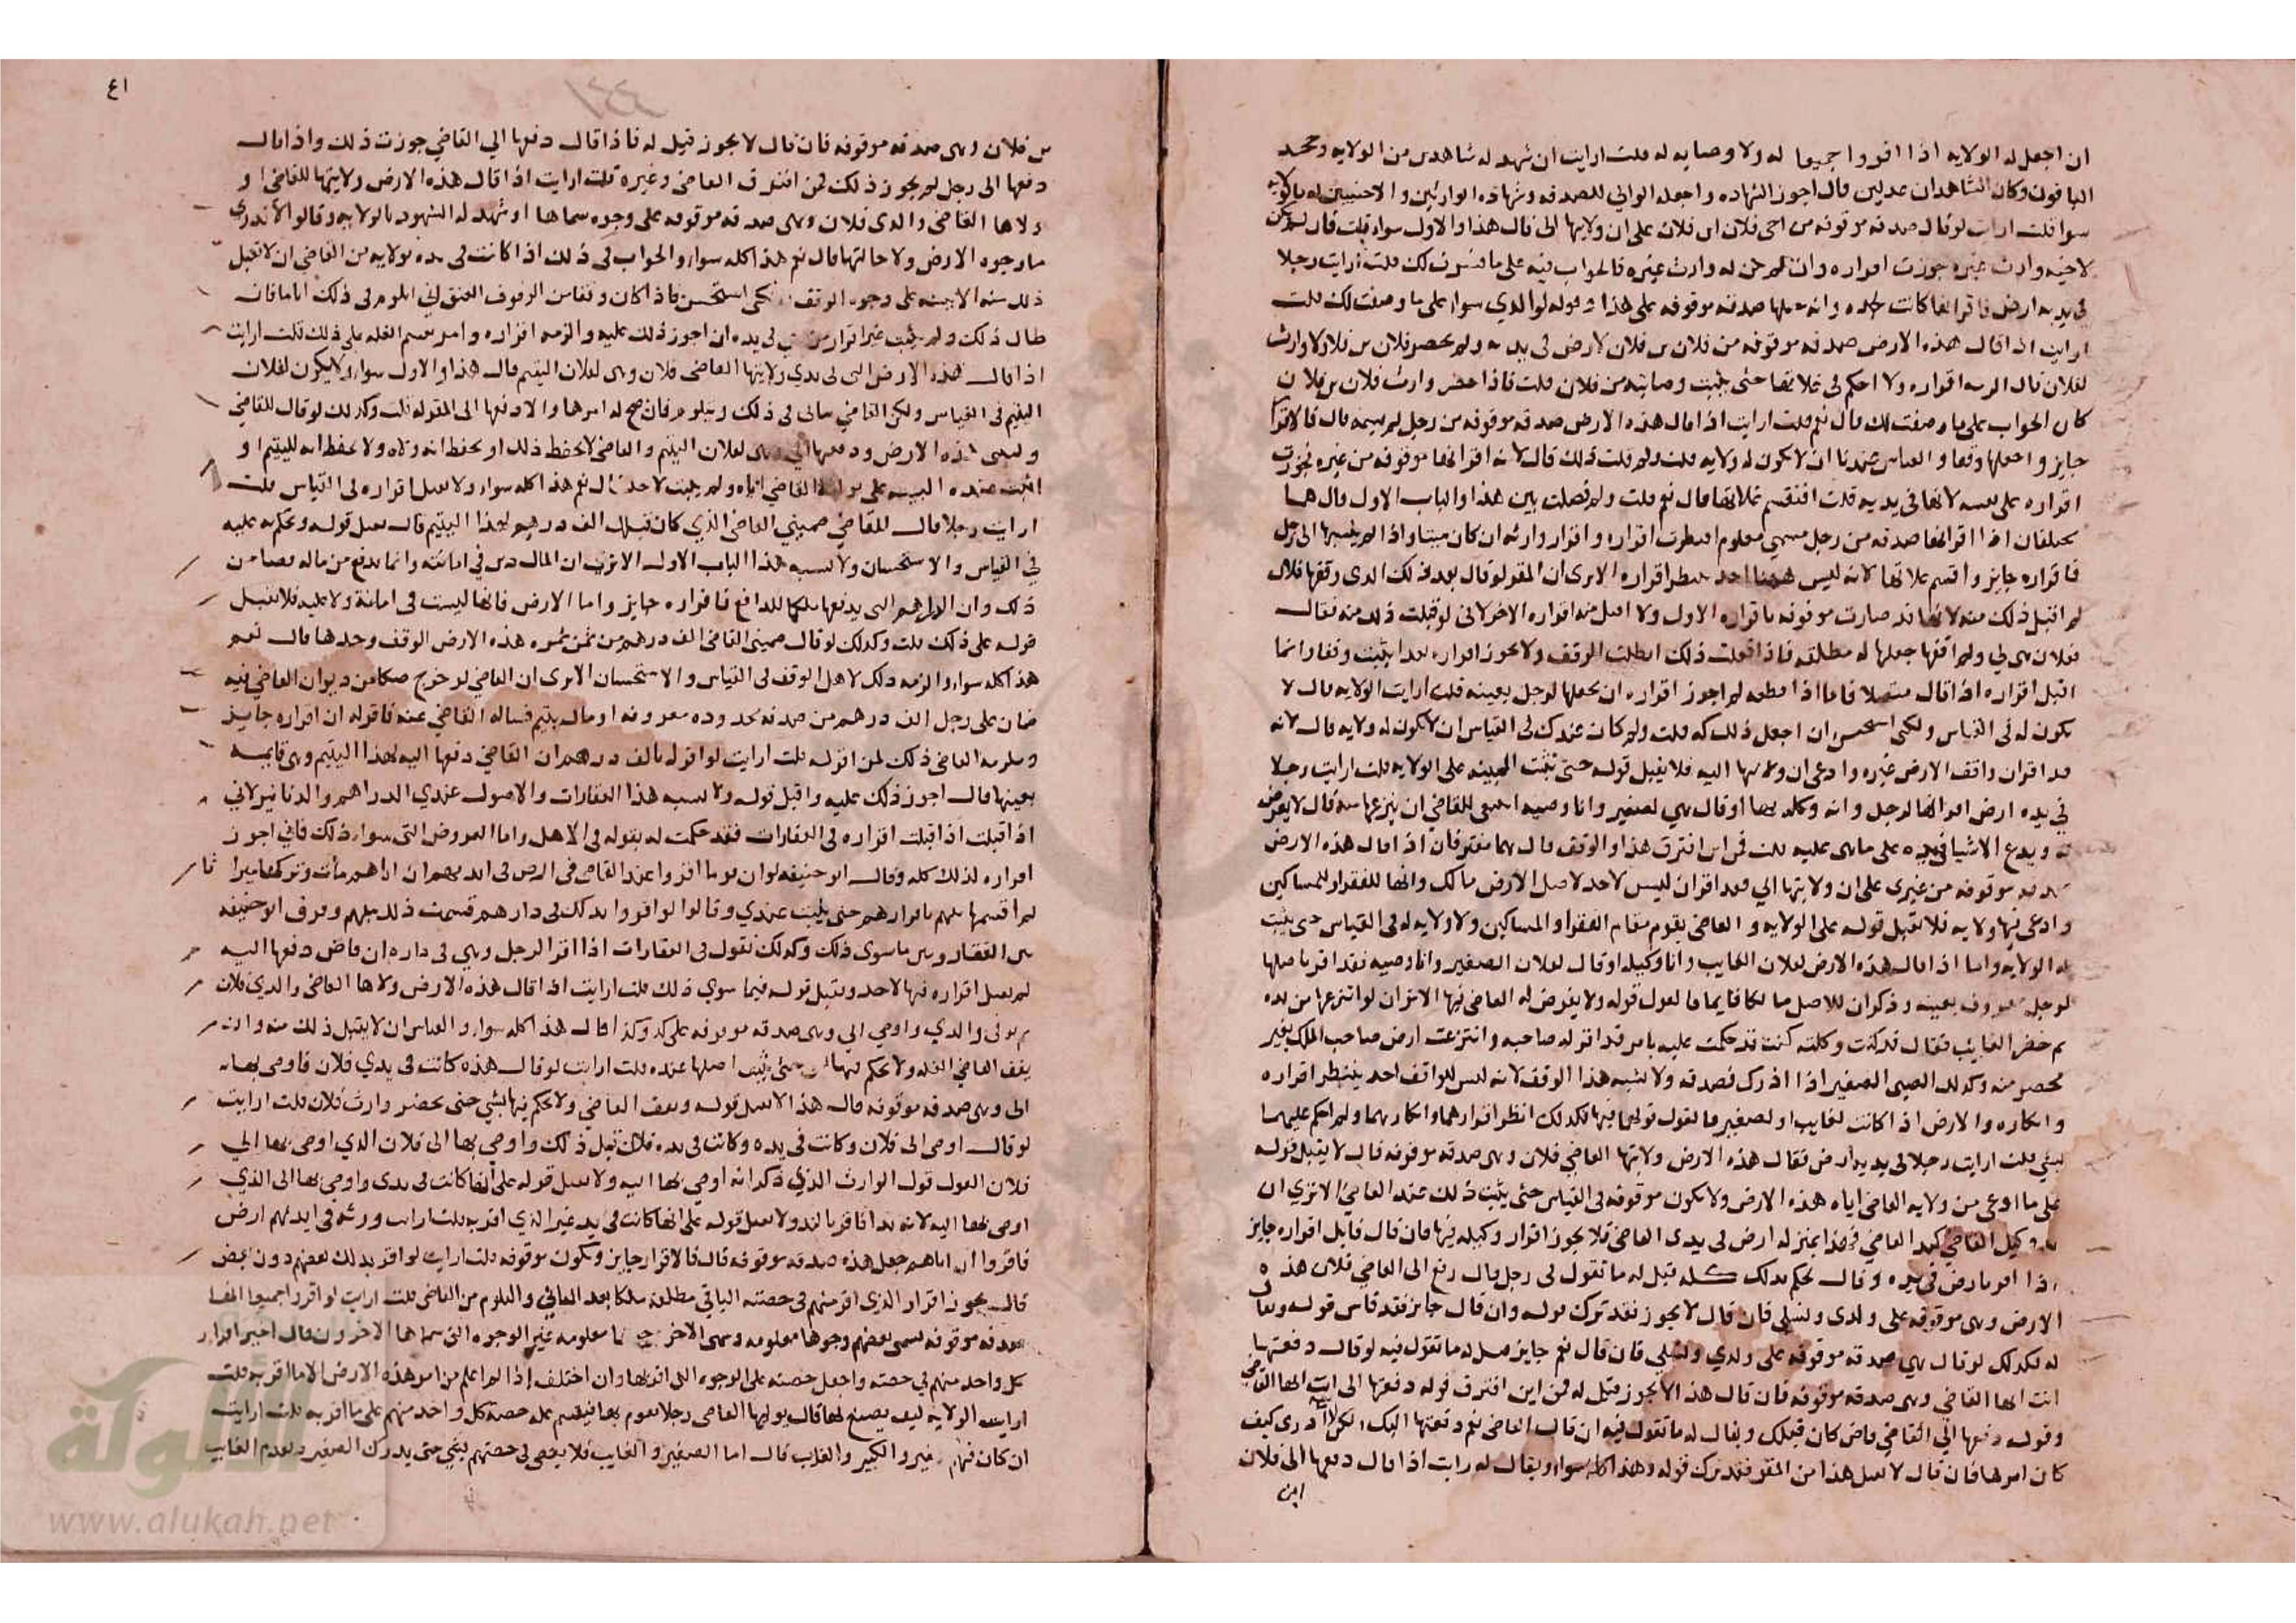 ان اجعل له الولايه اذا اقروا جميعا له ولا وصايه له قلت ارايت ان شهد له شاهدين من الولايه وجحد
الباقون وكان الشاهدان عدلين قال اجوز الشهاده واجعله الوالي للصدقه وشهاده الوارثين والاجنبيين له بالولايه
سوا قلت ارايت لو قال صدقه موقوفه من اخي فلان ابن فلان على ان ولايتها الي قال هذا والاول سواء قلت فان لم يكن
لاخيه وارث غيره جوزت اقراره وان لم يكن له وارث غيره فالجواب فيه على ما فسرت لك قلت ارايت رجلا
في يديه ارض فاقر انها كانت لجده وانه جعلها صدقه موقوفه على هذا وقوله لوالدي سواء على ما وصفت لك قلت
ارايت اذا قال هذه الارض صدقه موقوفه من فلان بن فلان لارض في يديه ولم يحضر فلان بن فلان ولا وارث
لفلان قال الزمه اقراره ولا احكم في غلاتها حتى يثبت وصايته من فلان قلت فاذا حضر وارث فلان بن فلان
كان الجواب على ما وصفت لك قال نعم قلت ارايت اذا قال هذه الارض صدقه موقوفه من رجل لم يسمه قال فالاقرار
جايز واجعلها وقفا والقياس عندنا ان لا يكون له ولايه قلت ولم قلت ذلك قال لانه اقر انها موقوفه من غيره فجوزت
اقراره على نفسه لانها في يديه قلت افتقسم غلاتها قال نعم قلت ولم فصلت بين هذا والباب الاول قال هما
مختلفان اذا اقر انها صدقه من رجل مسمى معلوم انتظرت اقراره واقرار وارثه ان كان ميتا واذا لم ينسبها الى رجل
فاقراره جايز واقسم غلاتها لانه ليس ههنا احد ينتظر اقراره الا ترى ان المقر لو قال بعد ذلك الذي وقفها فلان
لم اقبل ذلك منه لانها قد صارت موقوفه باقراره الاول ولا اقبل منه اقراره الاخر لاني لو قبلت ذلك منه فقال
فلان هي لي ولم اقفها جعلها له مطلقه فاذا فعلت ذلك ابطلت الوقف ولا يجوز اقراره بعدما يثبت وقفا وانما
اقبل اقراره اذا قال متصلا فاما اذا قطعه لم اجوز اقراره ان يجعلها لرجل بعينه قلت ارايت الولايه قال لا
تكون له في القياس ولكني استحسن ان اجعل ذلك له قلت ولم كان عندك في القياس ان لا يكون له ولايه قال لانه
قد اقر ان واقف الارض غيره وادعى ان ولايتها اليه فلا يقبل قوله حتى تثبت البينه على الولايه قلت ارايت رجلا
في يده ارض اقر انها لرجل وانه وكله بها او قال هي لصغير وانا وصيه اينبغي للقاضي ان ينزعها منه قال لا يعرض
له ويدع الاشيا في يده على ما هي عليه قلت فمن اين افترق هذا والوقف قال هما مفترقان اذا قال هذه الارض
صدقه موقوفه من غيري على ان ولايتها الي فقد اقر ان ليس لاحد لاصل الارض مالك وانها للفقرا والمساكين
وادعى فيها ولايه فلا نقبل قوله على الولايه والقاضي يقوم مقام الفقرا والمساكين ولا ولايه له في القياس حتى يثبت
له الولايه واما اذا قال هذه الارض لفلان الغايب وانا وكيله او قال لفلان الصغير وانا وصيه فقد اقر باصلها
لرجل معروف بعينه وذكر ان للاصل مالكا قايما فالقول قوله ولا يعرض له القاضي فيها الا ترى ان لو انتزعها من يده
ثم حضر الغايب فقال قد كنت وكلته كنت قد حكمت عليه بامر قد اقر له صاحبه وانتزعت ارض صاحب الملك بغير
محضر منه وكذلك الصبي الصغير اذا ادرك فصدقه ولا يشبه هذا الوقف لانه ليس للواقف احد ينتظر اقراره
وانكاره والارض اذا كانت لغايب او لصغير فالقول قولهما فيها فلذلك انظر اقرارهما وانكارهما ولم احكم عليهما
بشي قلت ارايت رجلا في يديه ارض فقال هذه الارض ولانيها القاضي فلان وهي صدقه موقوفه قال لا يقبل قوله
على ما ادعى من ولايه القاضي اياه هذه الارض ولا تكون موقوفه في القياس حتى يثبت ذلك عند القاضي الا ترى ان
يد وكيل القاضي كيد القاضي فهذا بمنزله ارض في يدي القاضي فلا يجوز اقرار وكيله فيها فان قال قايل اقراره جايز
اذا اقر بارض في يده وقال نحكم بذلك كله قيل له ما تقول في رجل قال دفع الى القاضي فلان هذه
الارض وهي موقوفه على ولدي ونسلي فان قال لا يجوز فقد ترك قوله وان قال جايز فقد قاس قوله ويقال
له كذلك لو قال هي صدقه موقوفه على ولدي ونسلي فان قال نعم جايز قيل له ما تقول فيه لو قال دفعتها
انت ايها القاضي وهي صدقه موقوفه فان قال هذا لا يجوز قيل له فمن اين افترق قوله دفعتها الي انت ايها القاضي
وقوله دفعها الي القاضي قاض كان قبلك ويقال له ما تقول فيه ان قال القاضي نعم دفعتها اليك ولكن لا ادري كيف
كان امرها فان قال لا يقبل هذا من المقر فقد ترك قوله وهذا كله سواء ويقال له ارايت اذا قال دفعها الي فلان
ابن
٤١
١٤٤
بن فلان وهي صدقه موقوفه فان قال لا يجوز قيل له فاذا قال دفعها الي القاضي جوزت ذلك واذا قال
دفعها الى رجل لم يجوز ذلك فمن افترق القاضي وغيره قلت ارايت اذا قال هذه الارض ولانيها القاضي او
ولاها القاضي والدي فلان وهي صدقه موقوفه على وجوه سماها او شهد له الشهود بالولايه وقالوا لا ندري
ما وجوه الارض ولا حالتها قال نعم هذا كله سواء والجواب في ذلك اذا كانت في يده بولايه من القاضي ان لا تقبل
ذلك منه الا ببينه على وجوه الوقف ولكني استحسن فاذا كان وقفا من الوقوف العتق اني اتلوم في ذلك اياما فان
طال ذلك ولم يثبت غير اقرار من هي في يده ان اجوز ذلك عليه والزمه اقراره وامر بقسم الغله على ذلك قلت ارايت
اذا قال هذه الارض التي في يدي ولانيها القاضي فلان وهي لفلان اليتيم قال هذا والاول سواء ولا يكون لفلان
اليتيم في القياس ولكن القاضي يتانى في ذلك ويتلوم فان صح له امرها والا دفعها الى المقر له قلت وكذلك لو قال للقاضي
وليتني هذه الارض ودفعتها الي وهي لفلان اليتيم والقاضي لا يحفظ ذلك او يحفظ انه ولاه ولا يحفظ انه لليتيم او
اثبت عنده البينه على توليه القاضي اياه ولم يثبت لاحد قال نعم هذا كله سواء ولا يقبل اقراره في القياس قلت
ارايت رجلا قال للقاضي ضمنني القاضي الذي كان قبلك الف درهم لهذا اليتيم قال يقبل قوله ويحكم به عليه
في القياس والاستحسان ولا يشبه هذا الباب الاول الا ترى ان المال دين في امانته وانما يدفع من ماله قضا من
ذلك وان الدراهم التي يدفعها ملكا للدافع فاقراره جايز واما الارض فانها ليست في امانة ولا عليه فلا نقبل
قوله على ذلك قلت وكذلك لو قال ضمنني القاضي الف درهم من ثمن ثمره هذه الارض الوقف وحدها قال نعم
هذا كله سواء والزمه ذلك لاهل الوقف في القياس والاستحسان الا ترى ان القاضي لو خرج صكا من ديوان القاضي فيه
ضمان على رجل الف درهم من صدقه بحدوده معروفه او مال يتيم فساله القاضي عنه فاقر له ان اقراره جايز
ويلزمه القاضي ذلك لمن اقر له قلت ارايت لو اقر له بالف درهم ان القاضي دفعها اليه لهذا اليتيم وهي قايمه
بعينها قال اجوز ذلك عليه واقبل قوله ولا يشبه هذا العقارات والاصول عندي الدراهم والدنانير لاني
اذا قبلت اقراره في العقارات فقد حكمت له بقوله في الاهل واما العروض التي سواء ذلك فاني اجوز
اقراره لذلك كله وقال ابو حنيفه لو ان قوما اقروا عند القاضي في ارض في ايديهم ان اباهم مات وتركها ميراثا
لم اقسمها بينهم باقرارهم حتى يثبت عندي وقالوا لو اقروا بذلك في دارهم قسمت ذلك بينهم وفرق ابو حنيفه
بين العقار وبين ما سوى ذلك وكذلك نقول في العقارات اذا اقر الرجل وهي في داره ان قاض دفعها اليه
لم يقبل اقراره فيها لاحد ويقبل قوله فيما سوى ذلك قلت ارايت اذا قال هذه الارض ولاها القاضي والدي فلان
ثم توفى والدي واوصى الي وهي صدقه موقوفه على كذا وكذا قال هذا كله سواء والقياس ان لا يقبل ذلك منه وان
يقف القاضي الغله ولا يحكم فيها حتى يثبت اصلها عنده قلت ارايت لو قال هذه كانت في يدي فلان فاوصى بها
الي وهي صدقه موقوفه قال هذا لا يقبل قوله ويقف القاضي ولا يحكم فيها بشي حتى يحضر وارث فلان قلت ارايت
لو قال اوصى الى فلان وكانت في يده وكانت في يده فلان قبل ذلك واوصى بها الى فلان الذي اوصى بها الي
فلان القول قول الوارث الذي ذكر انه اوصى بها اليه ولا يقبل قوله على انها كانت في يدي واوصى بها الى الذي
اوصى بها اليه لانه بدا فاقر باليد ولا يقبل قوله على انها كانت في يد غير الذي اقر به قلت ارايت ورثه في ايديهم ارض
فاقروا ان اباهم جعل هذه صدقه موقوفه قال فالاقرار جايز وتكون موقوفه قلت ارايت لو اقر بذلك بعضهم دون بعض
قال يجوز اقرار الذي اقر منهم في حصته الباقي مطلقه ملكا بعد التاني والتلوم من القاضي قلت ارايت لو اقروا جميعا انها
صدقه موقوفه فسمى بعضهم وجوها معلومه وسمى الاخر وجوها معلومه غير الوجوه التي سماها الاخرون قال اجيز اقرار
كل واحد منهم في حصته واجعل حصته على الوجوه التي اقر بها وان اختلف اذا لم اعلم من امر هذه الارض الا ما اقر به قلت
ارايت الولايه كيف يصنع بها قال يوليها القاضي رجلا يقوم بها فيقسم غله حصة كل واحد منهم على ما اقر به قلت ارايت
ان كان فيهم صغير والكبير والغايب قال اما الصغير والغايب فلا يقضى في حصتهم بشي حتى يدرك الصغير ويقدم الغايب
الألوكة
www.alukah.net